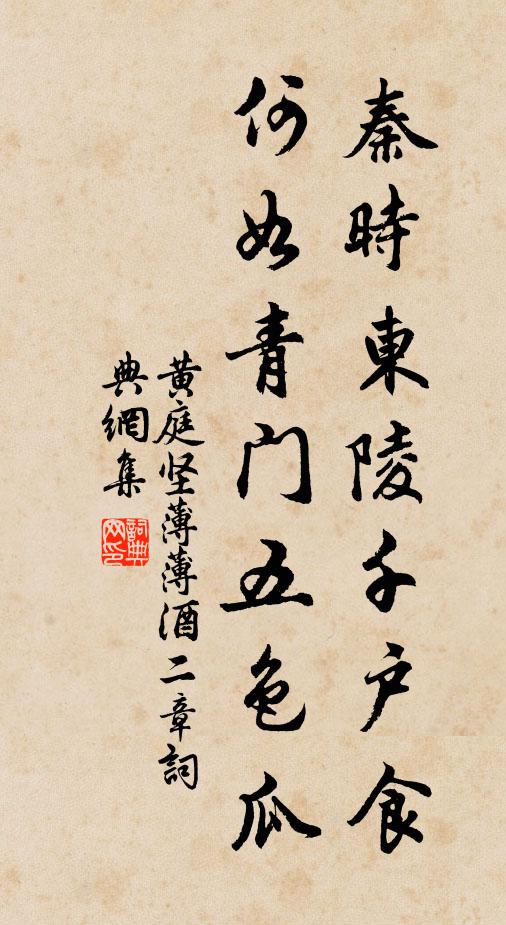 秦時東陵千户食
何如青门五色瓜
黄庭坚薄薄酒二章詞
典網集
詞典網印